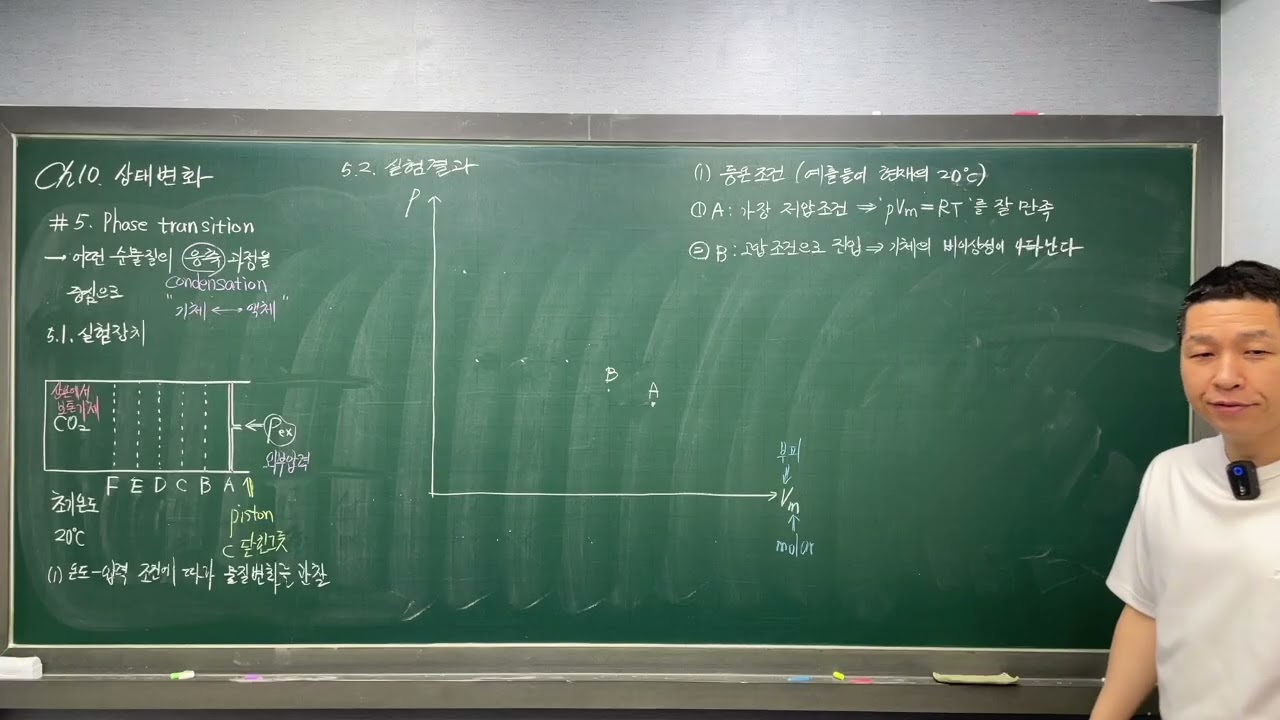 Ch10. 상태변화
#5. Phase transition
→ 어떤 순물질의 응축 과정을
중심으로
condensation
"기체 ↔ 액체"
5.1. 실험장치
상온에서
보통기체
CO₂
Pex
외부압력
F E D C B A
초기온도
20℃
piston
닫힌그릇
(1) 온도-압력 조건에 따라 물질변화를 관찰
5.2. 실험결과
P
B
A
부피
Vm
molar
(1) 등온조건 (예를들어 현재의 20℃)
① A: 가장 저압조건 ⇒ 'pVm = RT'를 잘 만족
② B: 고압조건으로 진입 ⇒ 기체의 비이상성이 나타난다